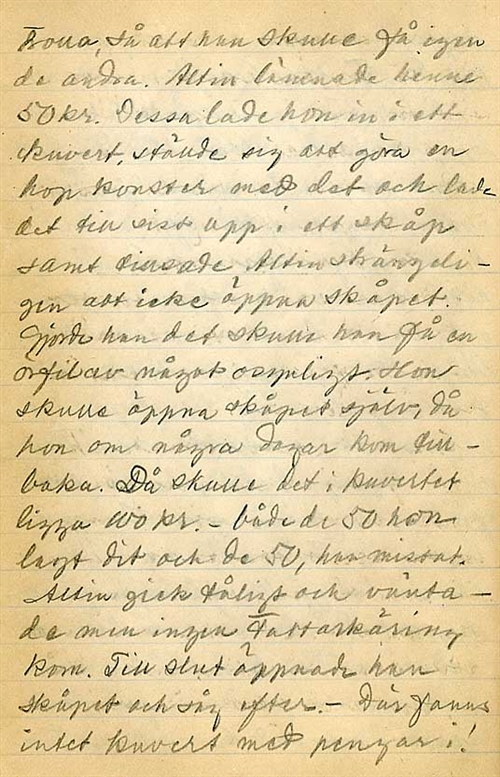 trolla, så att han skulle få igen
de andra. Altin lämnade henne
50 kr. Dessa lade hon in i ett
kuvert, ställde sig att göra en
hop konster med det och lade
det till sist upp i ett skåp
samt tillsade Altin strängeli-
gen att icke öppna skåpet.
Gjorde han det skulle han få en
örfil av något osynligt. Hon
skulle öppna skåpet själv, då
hon om några dagar kom till-
baka. Då skulle det i kuvertet
ligga 100 kr. – både de 50 hon
lagt dit och de 50, han mistat.
Altin gick tåligt och vänta-
de men ingen Tattarkäring
kom. Till slut öppnade han
skåpet och såg efter. – Där fanns
intet kuvert med pengar i!